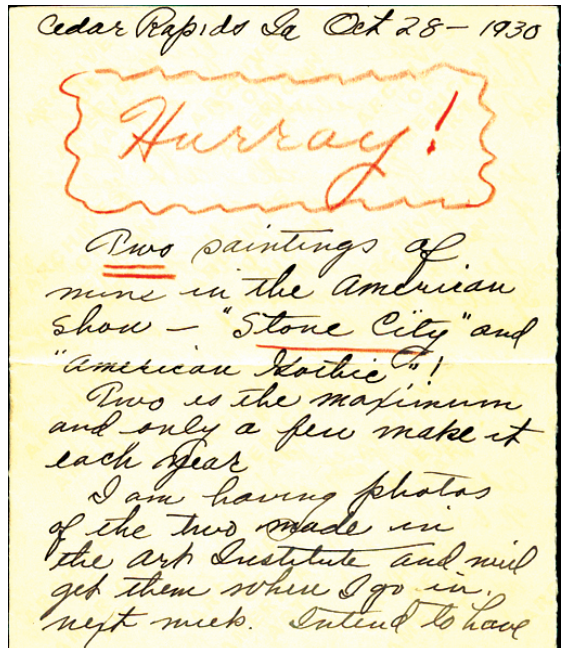 Cedar Rapids Ia Oct 28 - 1930
Hurray!
Two paintings of
mine in the American
show - "Stone City" and
"American Gothic"!
Two is the maximum
and only a few make it
each year
I am having photos
of the two made in
the Art Institute and will
get them when I go in.
next week. Intend to have